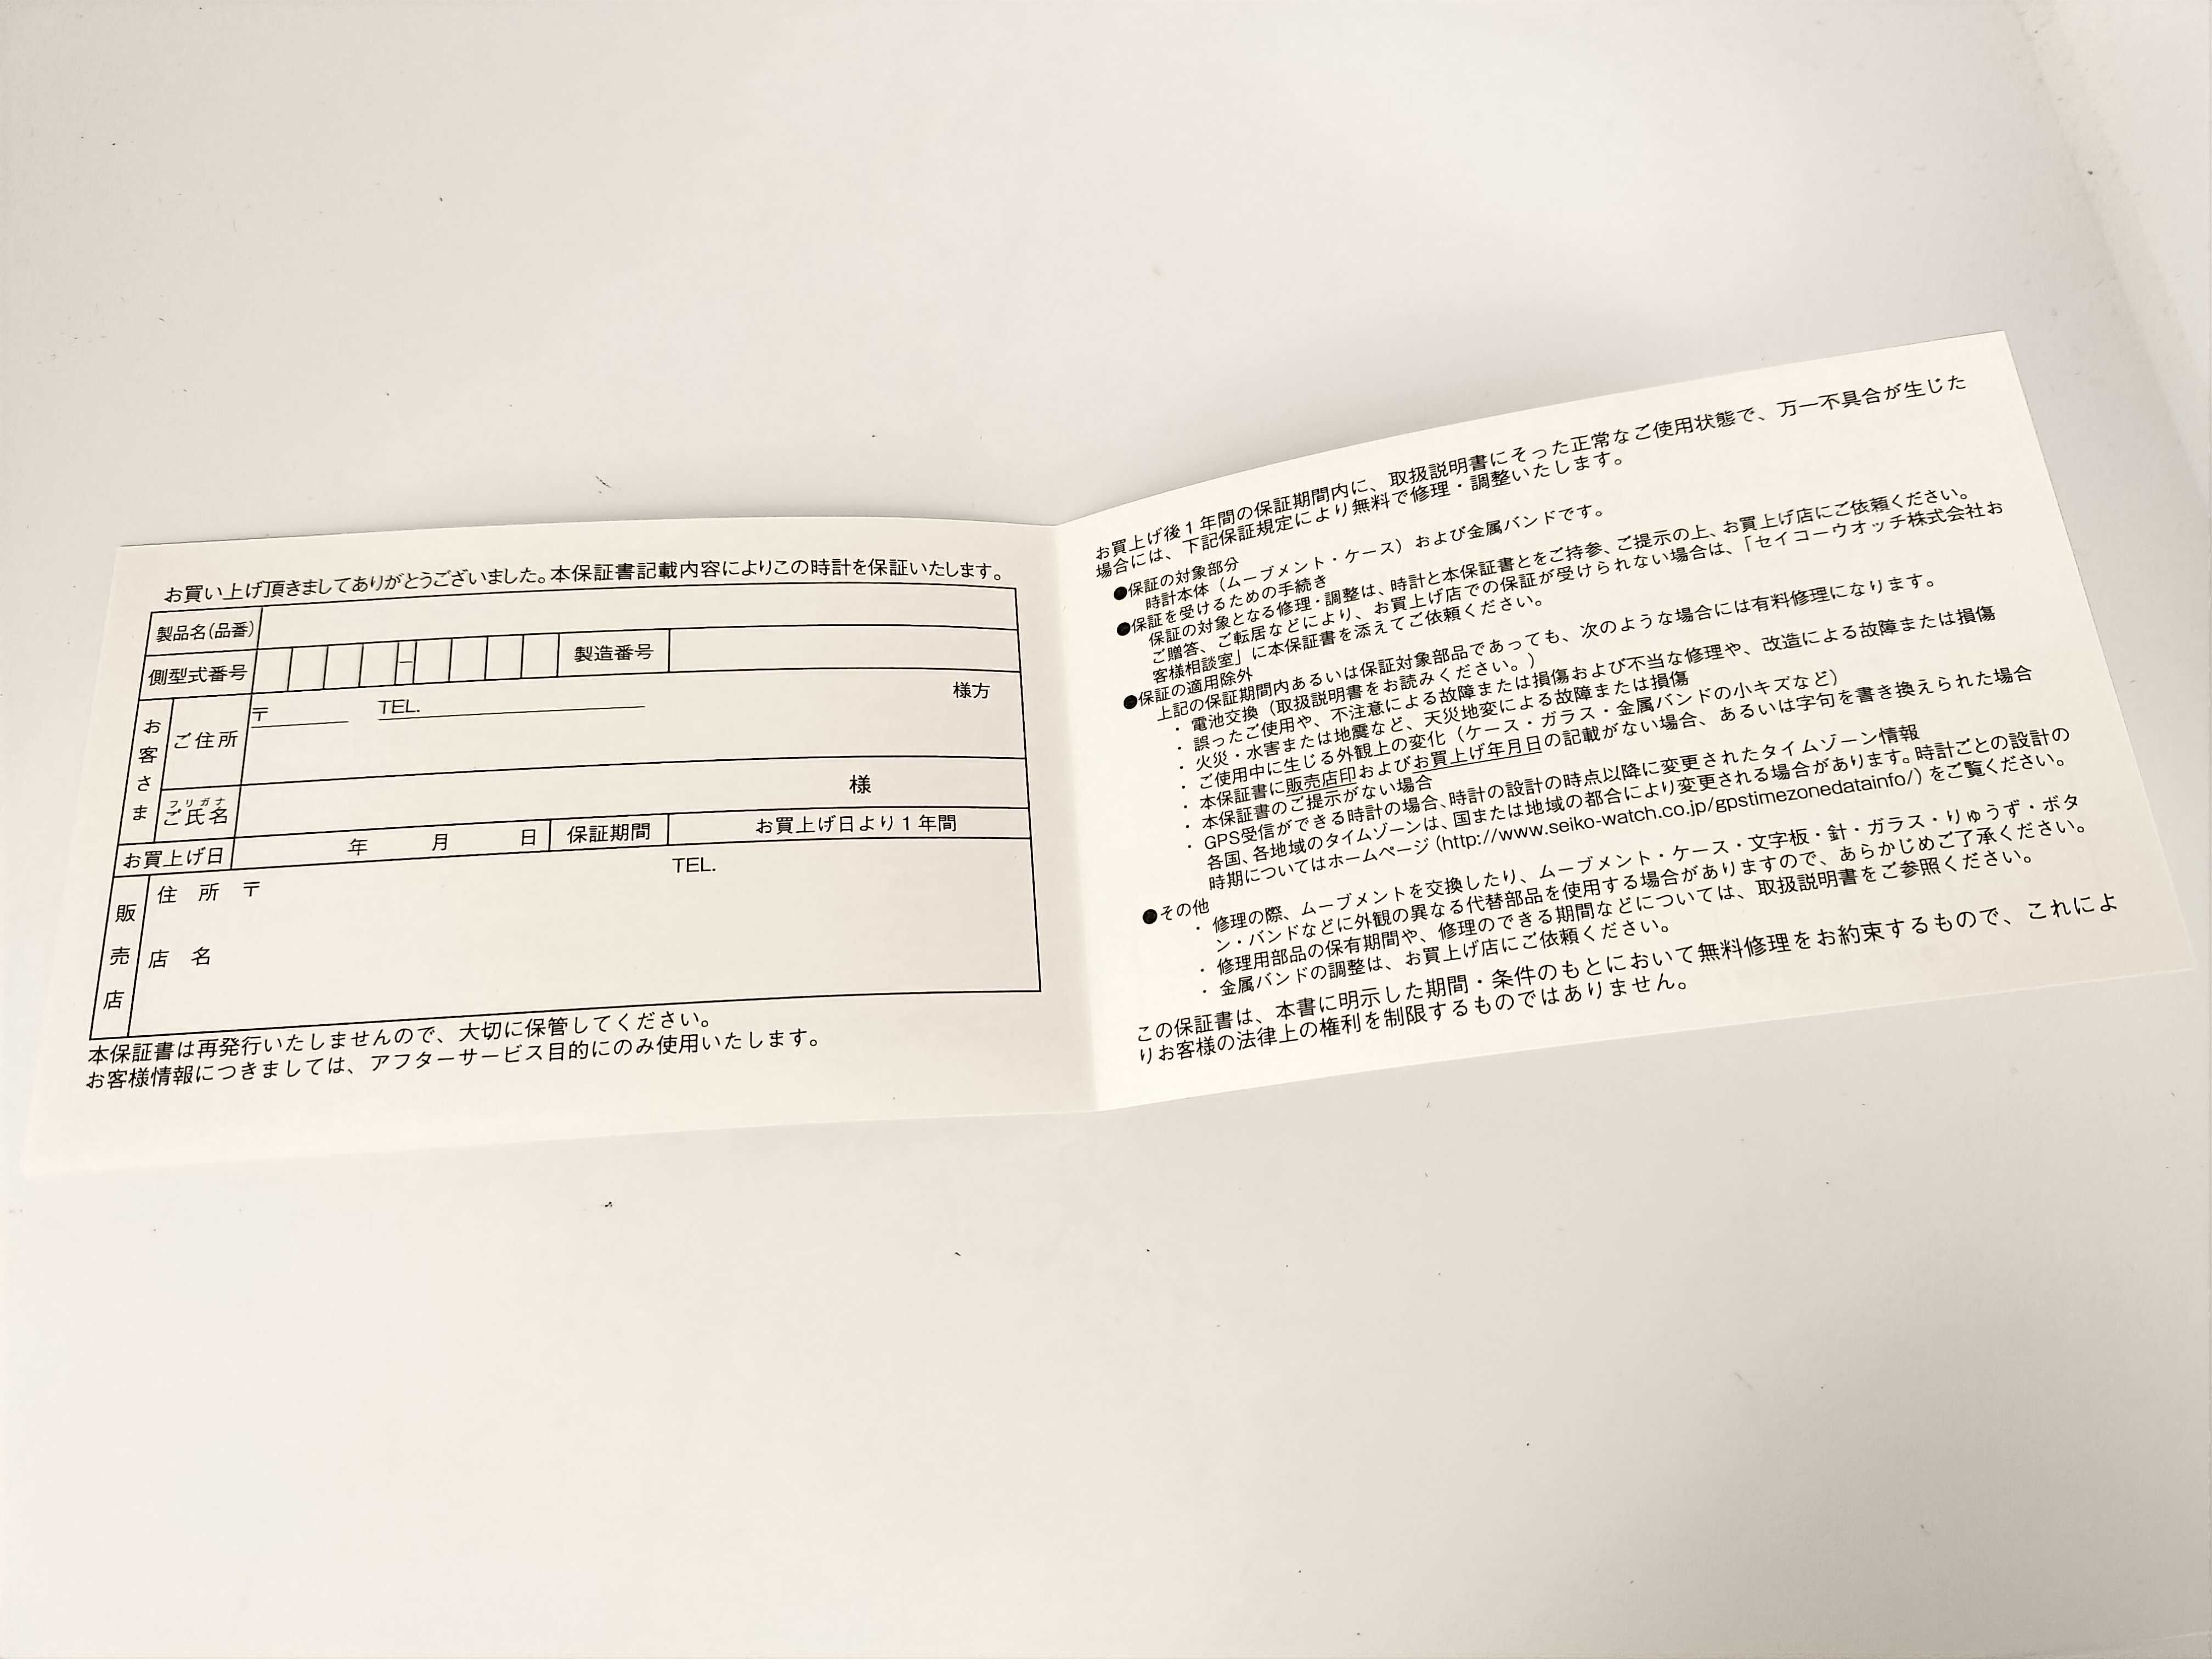 お買い上げ頂きましてありがとうございました。本保証書記載内容によりこの時計を保証いたします。
製品名(品番)
側型式番号 － 製造番号
お客さま
ご住所 〒 TEL. 様方
フリガナ
ご氏名 様
お買上げ日 年 月 日 保証期間 お買上げ日より1年間
販売店
住 所 〒 TEL.
店 名
本保証書は再発行いたしませんので、大切に保管してください。
お客様情報につきましては、アフターサービス目的にのみ使用いたします。
お買上げ後1年間の保証期間内に、取扱説明書にそった正常なご使用状態で、万一不具合が生じた
場合には、下記保証規定により無料で修理・調整いたします。
●保証の対象部分
時計本体(ムーブメント・ケース)および金属バンドです。
●保証を受けるための手続き
保証の対象となる修理・調整は、時計と本保証書とをご持参、ご提示の上、お買上げ店にご依頼ください。
ご贈答、ご転居などにより、お買上げ店での保証が受けられない場合は、「セイコーウオッチ株式会社お
客様相談室」に本保証書を添えてご依頼ください。
●保証の適用除外
上記の保証期間内あるいは保証対象部品であっても、次のような場合には有料修理になります。
・電池交換(取扱説明書をお読みください。)
・誤ったご使用や、不注意による故障または損傷および不当な修理や、改造による故障または損傷
・火災・水害または地震など、天災地変による故障または損傷
・ご使用中に生じる外観上の変化(ケース・ガラス・金属バンドの小キズなど)
・本保証書に販売店印およびお買上げ年月日の記載がない場合、あるいは字句を書き換えられた場合
・本保証書のご提示がない場合
・GPS受信ができる時計の場合、時計の設計の時点以降に変更されたタイムゾーン情報
各国、各地域のタイムゾーンは、国または地域の都合により変更される場合があります。時計ごとの設計の
時期についてはホームページ(http://www.seiko-watch.co.jp/gpstimezonedatainfo/)をご覧ください。
●その他
・修理の際、ムーブメントを交換したり、ムーブメント・ケース・文字板・針・ガラス・りゅうず・ボタ
ン・バンドなどに外観の異なる代替部品を使用する場合がありますので、あらかじめご了承ください。
・修理用部品の保有期間や、修理のできる期間などについては、取扱説明書をご参照ください。
・金属バンドの調整は、お買上げ店にご依頼ください。
この保証書は、本書に明示した期間・条件のもとにおいて無料修理をお約束するもので、これによ
りお客様の法律上の権利を制限するものではありません。